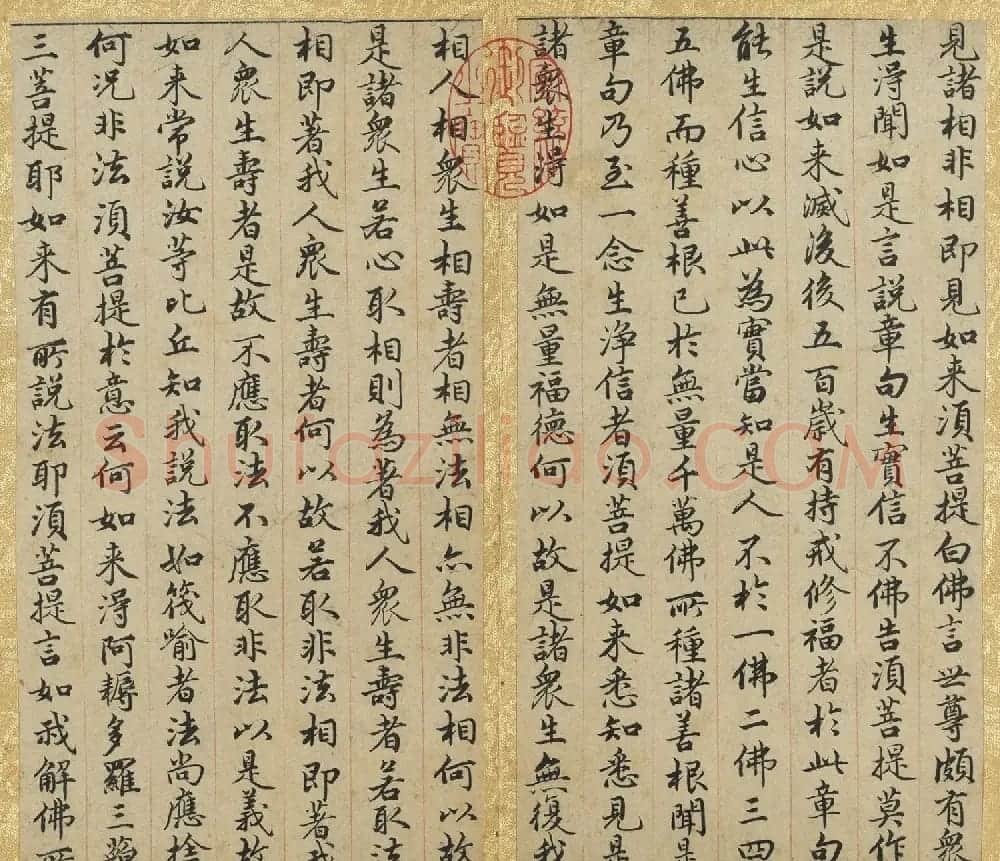 見諸相非相即見如来須菩提白佛言世尊頗有衆
生淂聞如是言説章句生實信不佛告須菩提莫作
是説如来滅後後五百歳有持戒修福者於此章句
能生信心以此為實當知是人不於一佛二佛三四
五佛而種善根已於無量千萬佛所種諸善根聞是
章句乃至一念生浄信者須菩提如来悉知悉見是
諸衆生淂如是無量福徳何以故是諸衆生無復我
相人相衆生相壽者相無法相亦無非法相何以故
是諸衆生若心取相則為著我人衆生壽者若取法
相即著我人衆生壽者何以故若取非法相即著我
人衆生壽者是故不應取法不應取非法以是義故
如来常説汝等比丘知我説法如筏喻者法尚應捨
何况非法須菩提於意云何如来淂阿耨多羅三藐
三菩提耶如来有所説法耶須菩提言如我解佛所
Shufaziliao.COM